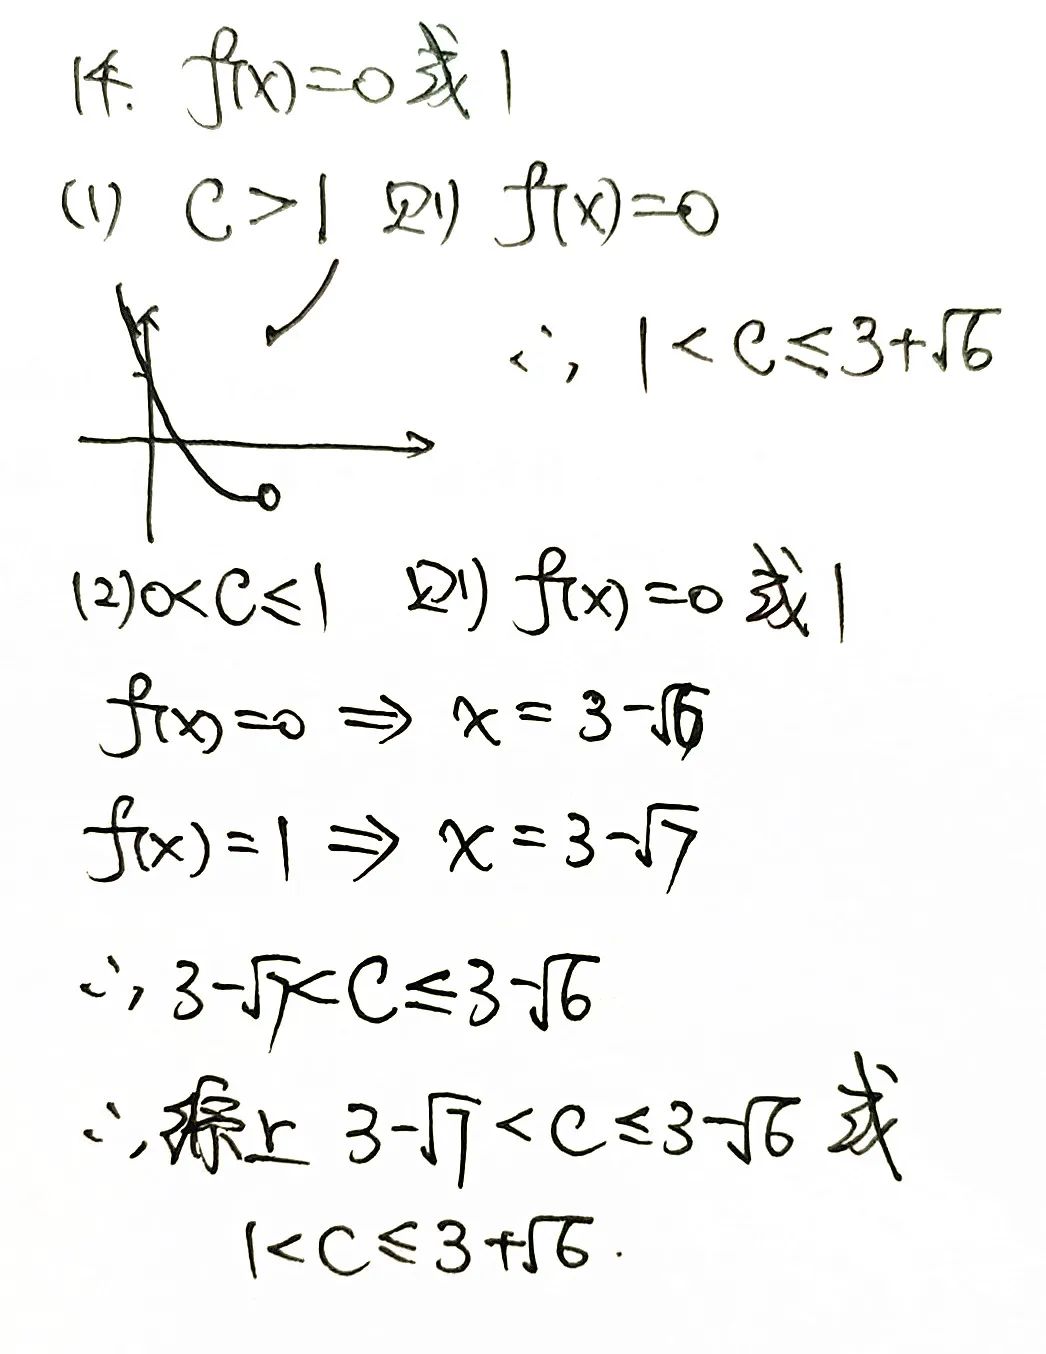 14. f(x)=0或1
(1) C>1 则 f(x)=0
∴, 1<C≤3+√6
(2)0<C≤1 则 f(x)=0或1
f(x)=0 ⇒ x=3-√6
f(x)=1 ⇒ x=3-√7
∴, 3-√7<C≤3-√6
∴, 综上 3-√7<C≤3-√6 或
1<C≤3+√6.